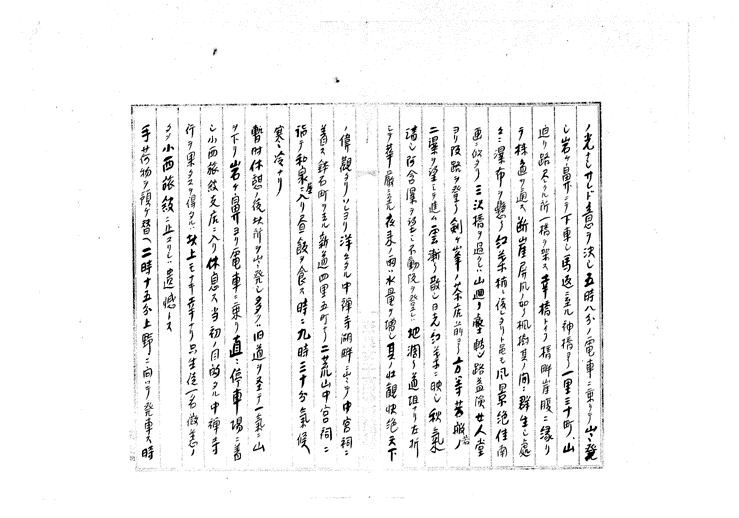 ノ光ナシサレド意ヲ決シ五時八分ノ電車ニ乗リテ出発
シ岩ヶ鼻ニテ下車シ馬返ニ至ル神橋ヨリ一里三十町、山
迫リ路尽クル所一橋ヲ架ス幸橋トイフ橋畔崖腹ニ縁リ
テ桟道ヲ通ス断崖屏風ノ如ク楓樹其ノ間ニ群生シ処
々ニ瀑布ヲ懸ク紅葉稍後レタリト雖モ風景絶佳南
画ニ似タリ三次橋ヲ過グレバ山廻リ壑転ジ路益険女人堂
ヨリ阪路ヲ登リ剣ヶ峯ノ茶店前ヨリ方等般若ノ
二瀑ヲ望ミテ進ム雲漸ク散ジ日光紅葉ニ映ジ秋気水
清シ阿含瀑ヲ望ミ不動阪ヲ登レバ地濶ク道坦ナリ左折
シテ華厳ニ至ル夜来ノ雨ニ水量ヲ増シ其ノ壮観快絶天下
ノ偉観タリソレヨリ洋々タル中禅寺湖畔ニ出テ中宮祠ニ
着ス鉢石町ヨリ新道四里五町ナリ二荒山中宮祠ニ
詣テ和泉屋ニ入リ昼飯ヲ食ス時ニ九時三十分気候
寒冷ナリ
暫時休憩ノ後此所ヲ出発シ多クハ旧道ヲ経テ一気ニ山
ヲ下リ岩ヶ鼻ヨリ電車ニ乗リ直ニ停車場ニ着
シ小西旅館支店ニ入リ休息ス当初ノ目的タル中禅寺
行ヲ果タスヲ得タルハ此上モナキ幸ナリ只生徒一名微恙ノ
タメ小西旅館ニ止マリシハ遺憾トス
手荷物ヲ預ケ替ヘ二時十五分上野ニ向ツテ発車ス時